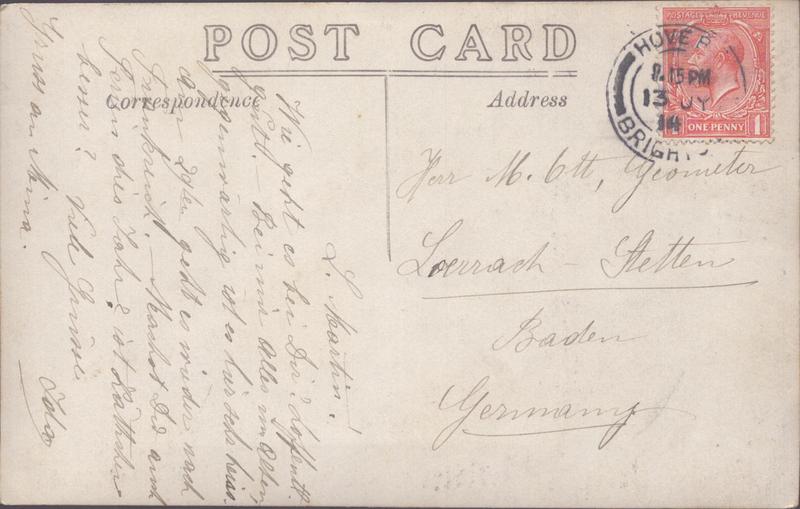 POST CARD
Correspondence
Address
POSTAGE REVENUE
ONE PENNY 1
HOVE
.15 PM
13 JY
14
BRIGHTON
Herr M. Ott, Geometer
Loerrach - Stetten
Baden
Germany
L. Martin!
Wie geht es bei Dir? Hoffentl.
gut! - Bei mir Alles im Alten,
gegenwärtig ist es hier sehr heiss.
geht es wieder nach
Frankreich. - Machst Du auch
Ferien dies Jahr? ist
besser? Viele Grüsse
Ida
Gruss an Mina.